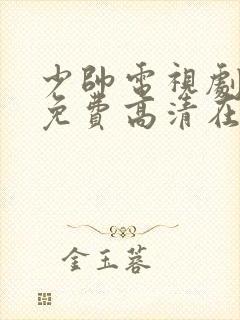 少帥電視劇
免費高清在
金玉蓉